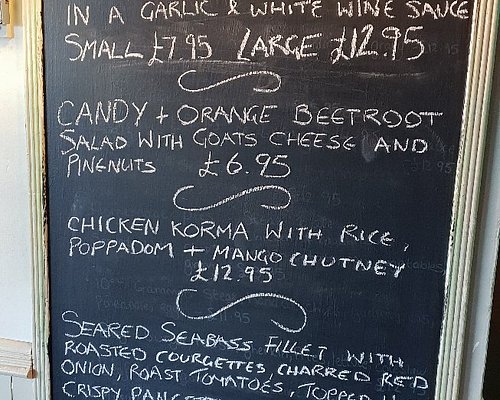 IN A GARLIC & WHITE WINE SAUCE
SMALL £7.95 LARGE £12.95
CANDY + ORANGE BEETROOT
SALAD WITH GOATS CHEESE AND
PINENUTS £6.95
CHICKEN KORMA WITH RICE,
POPPADOM + MANGO CHUTNEY
£12.95
SEARED SEABASS FILLET WITH
ROASTED COURGETTES, CHARRED RED
ONION, ROAST TOMATOES, TOPPED
CRISPY